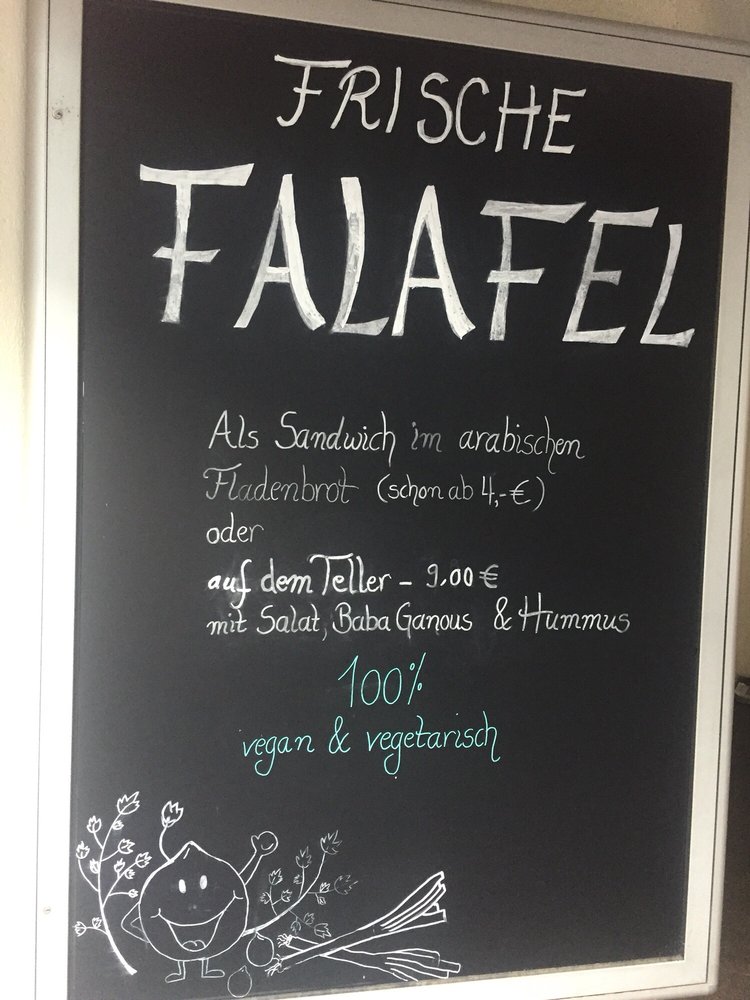 FRISCHE
FALAFEL
Als Sandwich im arabischen
Fladenbrot (schon ab 4,-€)
oder
auf dem Teller - 9,00 €
mit Salat, Baba Ganous & Hummus
100%
vegan & vegetarisch